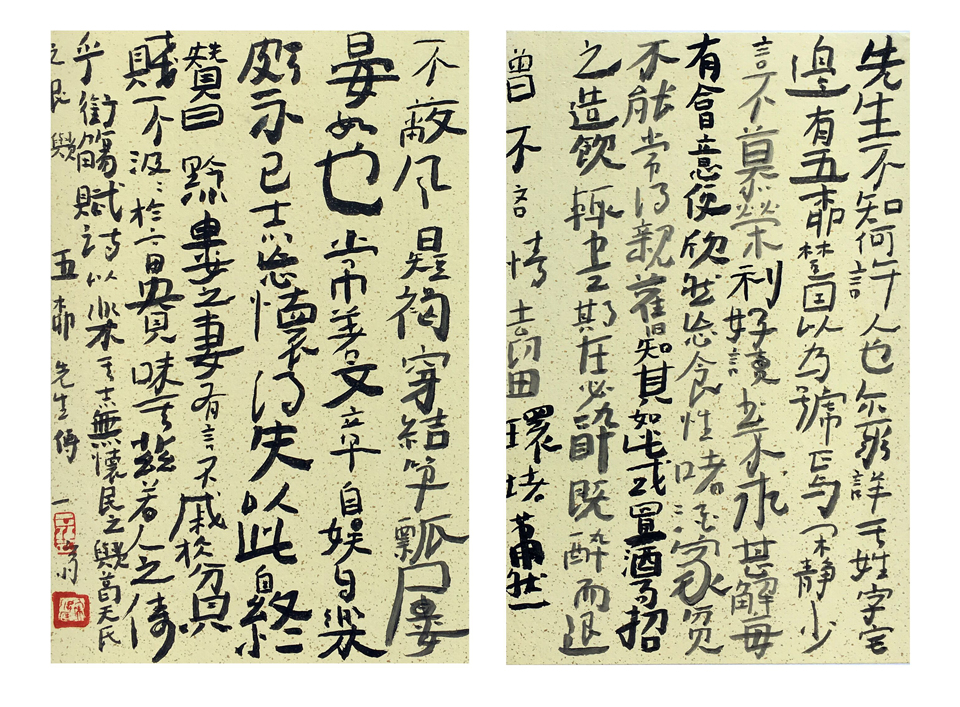 先生不知何許人也亦不詳其姓字宅
邊有五柳樹因以為號焉閑靜少
言不慕榮利好讀書不求甚解每
有會意便欣然忘食性嗜酒家貧
不能常得親舊知其如此或置酒而招
之造飲輒盡期在必醉既醉而退
曾不吝情去留環堵蕭然
不蔽風日短褐穿結簞瓢屢
晏如也常著文章自娛自樂
頗示己志忘懷得失以此自終
贊曰黔婁之妻有言不戚於貧
賤不汲〻於富貴味其茲若人之儔
乎銜觴賦詩以樂其志無懷民之歟葛天氏
之民歟 五柳先生傳 一翁